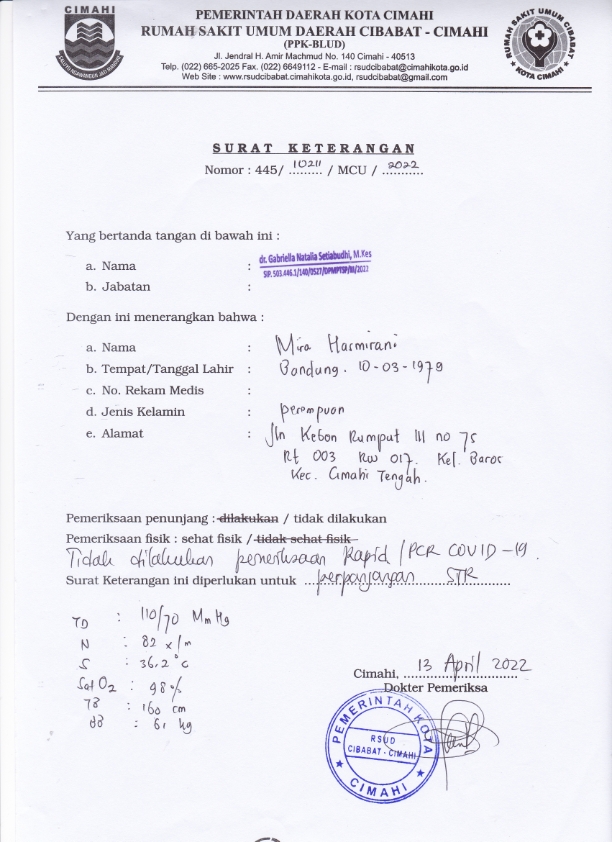 CIMAHI
PEMERINTAH DAERAH KOTA CIMAHI
RUMAH SAKIT UMUM DAERAH CIBABAT - CIMAHI
(PPK-BLUD)
Jl. Jendral H. Amir Machmud No. 140 Cimahi - 40513
Telp. (022) 665-2025 Fax. (022) 6649112 - E-mail : rsudcibabat@cimahikota.go.id
Web Site : www.rsudcibabat.cimahikota.go.id, rsudcibabat@gmail.com
RUMAH SAKIT UMUM CIBABAT
KOTA CIMAHI
SURAT KETERANGAN
Nomor : 445/ 10211 / MCU / 2022
Yang bertanda tangan di bawah ini :
a. Nama : dr. Gabriella Natalia Setiabudhi, M.Kes
SIP. 503.446.1/140/0527/DPMPTSP/III/2022
b. Jabatan :
Dengan ini menerangkan bahwa :
a. Nama : Mira Harmirani
b. Tempat/Tanggal Lahir : Bandung. 10-03-1979
c. No. Rekam Medis :
d. Jenis Kelamin : perempuan
e. Alamat : Jln Kebon Rumput III no 75
Rt 003 Rw 017. Kel. Baros
Kec. Cimahi Tengah.
Pemeriksaan penunjang : dilakukan / tidak dilakukan
Pemeriksaan fisik : sehat fisik / tidak sehat fisik
Tidak dilakukan pemeriksaan Rapid / PCR COVID-19.
Surat Keterangan ini diperlukan untuk perpanjangan STR
TD : 110/70 MmHg
N : 82 x/m
S : 36,2°c
Sat O2 : 98%
TB : 160 cm
BB : 61 kg
Cimahi, 13 April 2022
Dokter Pemeriksa
PEMERINTAH KOTA
RSUD
CIBABAT - CIMAHI
CIMAHI